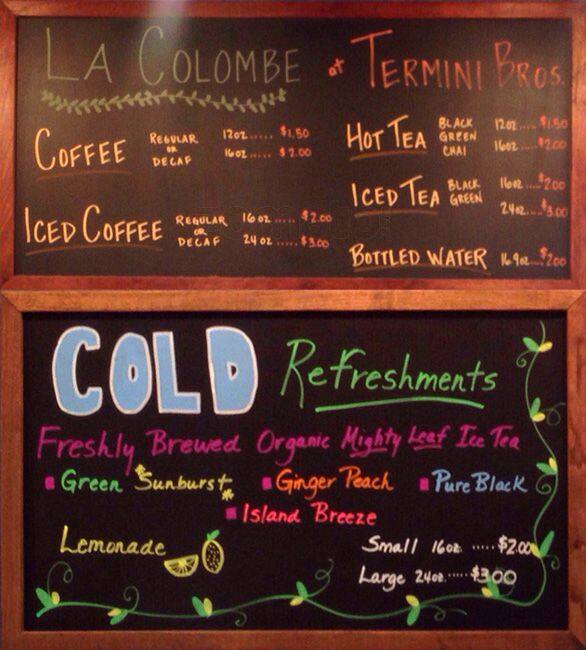 LA COLOMBE at TERMINI BROS.
COFFEE REGULAR OR DECAF
12oz..... $1.50
16oz..... $2.00
HOT TEA BLACK GREEN CHAI
12oz.... $1.50
16oz.... $2.00
ICED COFFEE REGULAR OR DECAF
16oz..... $2.00
24oz..... $3.00
ICED TEA BLACK GREEN
16oz.... $2.00
24oz.... $3.00
BOTTLED WATER 16.9oz....$2.00
COLD Refreshments
Freshly Brewed Organic Mighty Leaf Ice Tea
Green Sunburst Ginger Peach Pure Black
Island Breeze
Lemonade
Small 16oz.....$2.00
Large 24oz.....$3.00